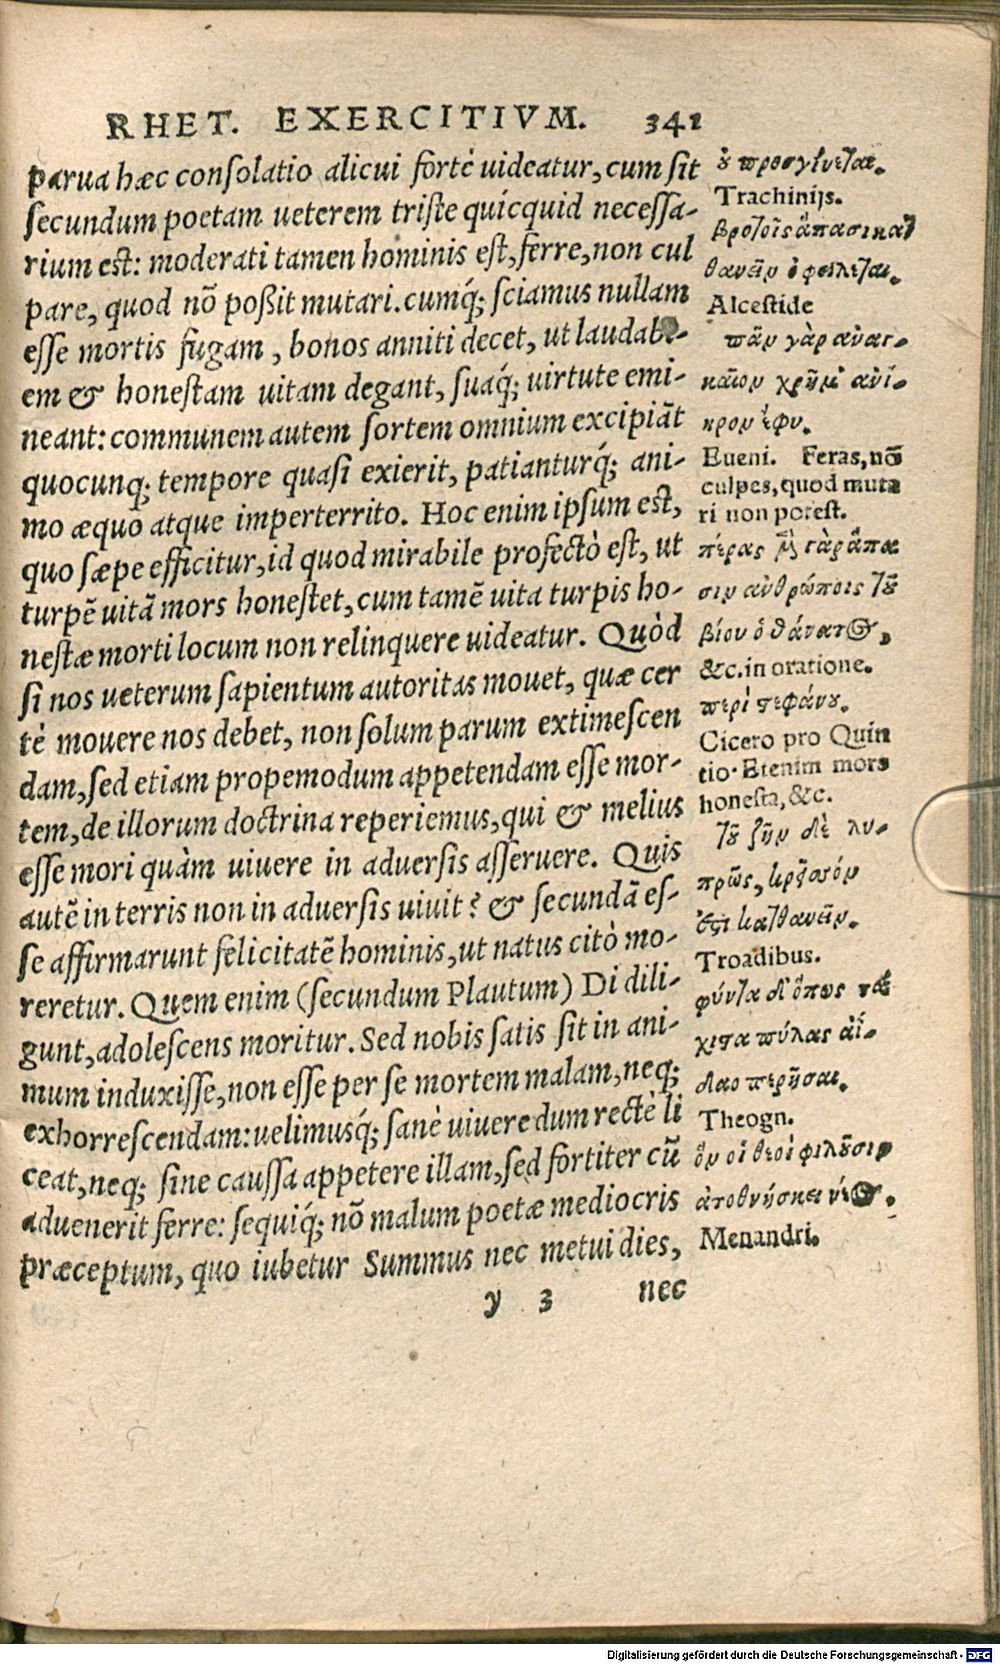 RHET. EXERCITIVM. 341
parua hæc conſolatio alicui fortè uideatur, cum ſit
ſecundum poetam ueterem triſte quícquid neceſſa-
rium est: moderati tamen hominis eſt, ferre, non cul
pare, quod nō poßit mutari. cumq́; ſciamus nullam
eſſe mortis fugam, bonos anniti decet, ut laudabi-
em & honeſtam uitam degant, ſuaq́; uirtute emi-
neant: communem autem ſortem omnium excipiāt
quocunq; tempore quaſi exierit, patianturq́; ani-
mo æquo atque imperterrito. Hoc enim ipſum est,
quo ſæpe efficitur, id quod mirabile profectò est, ut
turpē uitā mors honeſtet, cum tamē uita turpis ho-
neſtæ morti locum non relinquere uideatur. Quòd
ſi nos ueterum ſapientum autoritas mouet, quæ cer
tè mouere nos debet, non ſolum parum extimeſcen
dam, ſed etiam propemodum appetendam eſſe mor-
tem, de illorum doctrina reperiemus, qui & melius
eſſe mori quàm uiuere in aduerſis aſſeruere. Quis
autē in terris non in aduerſis uiuit? & ſecundā eſ-
ſe affirmarunt felicitatē hominis, ut natus citò mo-
reretur. Quem enim (ſecundum Plautum) Di dili-
gunt, adoleſcens moritur. Sed nobis ſatis ſit in ani-
mum induxiſſe, non eſſe per ſe mortem malam, neq;
exhorreſcendam: uelimusq́; ſanè uiuere dum rectè li
ceat, neq; ſine cauſſa appetere illam, ſed fortiter cū
aduenerit ferre: ſequiq́; nō malum poetæ mediocris
præceptum, quo iubetur Summus nec metui dies,
y 3 nec
ȣ προσγίνεται.
Trachinijs.
βροτοῖς ἅπασι κατ
θανεῖν ὀφείλεται.
Alceſtide
πᾶν γὰρ αναγ-
καῖον χρῆμ' ἀνί-
κρον ἔφυ.
Eueni. Feras, nō
culpes, quod muta
ri non poteſt.
πέρας μὲν γὰρ ἅπα
σιν ἀνθρώποις τȣ
βίου ὁ θάνατος,
&c. in oratione.
περὶ στεφάνȣ.
Cicero pro Quin
tio. Etenim mors
honeſta, &c.
τȣ ζῆν δὲ λυ-
πρῶς, κρεῖσσόν
ἐστι κατθανεῖν.
Troadibus.
φύντα δ' ὅπως τά
χιστα πύλας ἀΐ-
δαο περῆσαι.
Theogn.
ὃν οἱ θεοὶ φιλȣσιν
ἀποθνήσκει νέος.
Menandri.
Digitalisierung gefördert durch die Deutsche Forschungsgemeinschaft - DFG